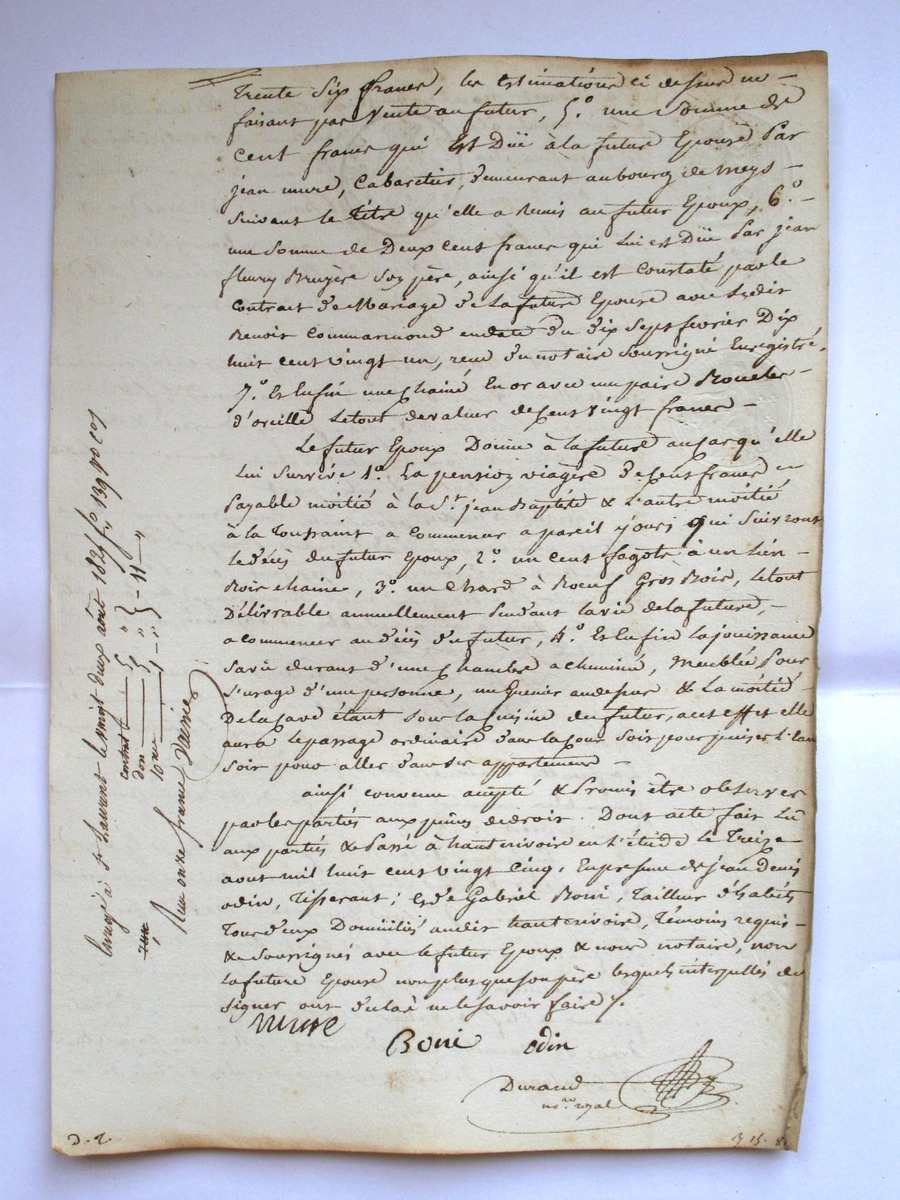 trente Six francs, les estimations ci dessus ne
faisant pas Vente au futur, 5.° une Somme de
Cent francs qui Est Düe à la future Epouse Par
jean mure, Cabaretier, demeurant au bourg de meys
Suivant le titre qu'elle a Remis au futur Epoux, 6.°
une Somme de Deux cent francs qui Lui est Düe Par jean
fleury Bruyère Son père, ainsi qu'il est Constaté par le
Contrat de Mariage de la future Epouse avec
Benoit Commarmond en date du dix Sept fevrier Dix
huit cent vingt un, reçu du notaire Soussigné Enregistré,
7.° Et Enfin une Chaine En or avec une paire Boucles
d'oreille le tout de valeur de Cent vingt francs
Le futur Epoux Donne à la future au Cas qu'elle
Lui Survive 1.° La pension viagère de Cent francs
Payable moitié à la S.t jean Baptiste & L'autre moitié
à la Toussaint a Commencer a pareil jours qui Suivront
le décès du futur Epoux, 2.° un cent fagots à un Lien
Bois chaine, 3.° un Chard à Boeuf Gros Bois, le tout
Délivrable annuellement Pendant la vie de la future,
a commencer au décès du futur, 4.° Et Enfin la jouissance
Sa vie durant d'une Chambre a cheminé, Meublée Pour
l'usage d'une personne, un Grenier au dessus & La moitié
De la Cave étant Sous la Cuisine du futur, a cet effet elle
aura le passage ordinaire dans la Cour Soit pour puiser l'eau
Soit pour aller dans Ses appartement
ainsi convenu accepté & Promis être observer
par les parties aux peines de droit. Dont acte fait Lû
aux parties & Passé à hauterivoire en l'étude le Treize
aout mil huit cent vingt Cinq, En présence de jean Denis
odin, Tisserant; Et de Gabriel Boni, Tailleur d'habits
Tous deux Domiciliés audit hauterivoire, Témoins requis
& Soussignés avec le futur Epoux & nous notaire, non
La future Epouse non plus que son père lesquels interpellés de
Signer ont déclaré ne le Savoir faire /.
mure
Boni odin
Durand
no.re royal
à S.t Laurent le vingt deux août 1825 f.o 139
contrat 5
don 5
10me 1
11
Reçu onze francs
D. 2.